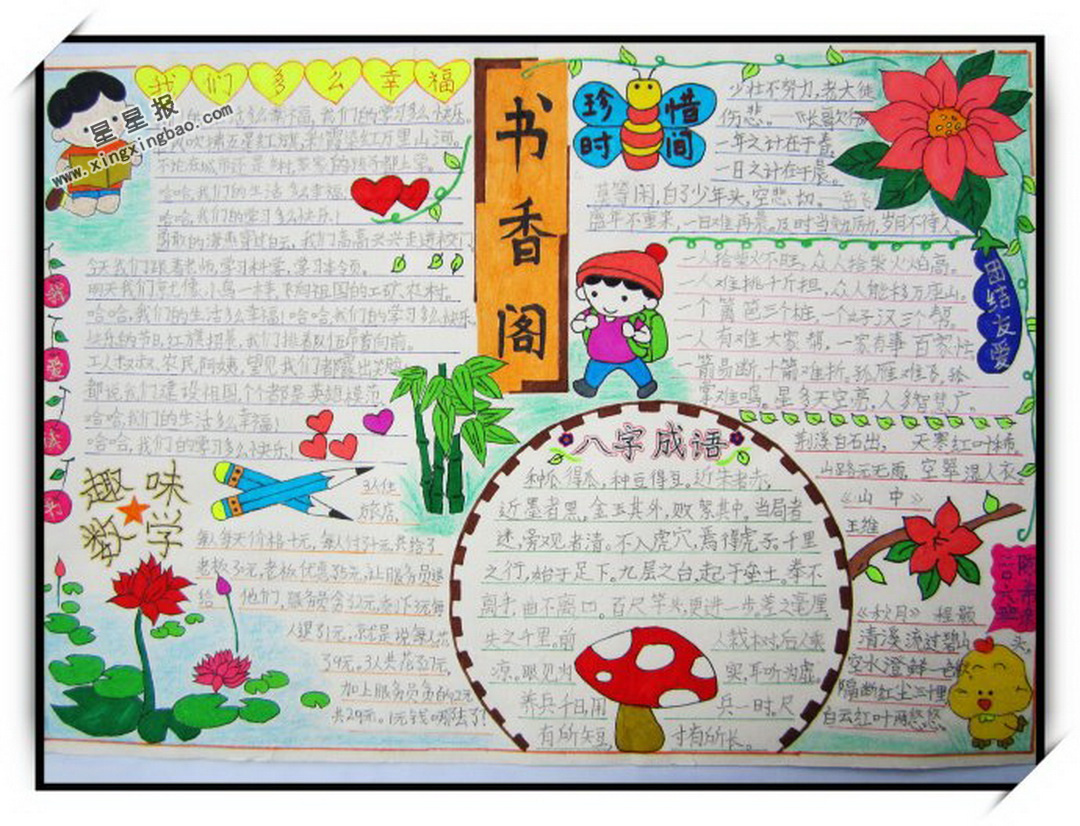 我们多么幸福
星星报
www.xingxingbao.com
我们的生活多么幸福,我们的学习多么快乐。
哈哈,我们的生活多么幸福
哈哈,我们的学习多么快乐!
勇敢的海燕穿过白云,我们高高兴兴走进校门。
今天我们跟着老师,学习科学,学习本领。
明天我们就像小鸟一样,飞向祖国的工矿农村。
哈哈,我们的生活多么幸福!哈哈,我们的学习多么快乐。
快乐的节日,红旗招展,我们排着队伍昂首向前。
工人叔叔,农民阿姨,望见我们都露出笑脸
都说我们建设祖国,个个都是英雄模范
哈哈,我们的生活多么幸福!
哈哈,我们的学习多么快乐!
我爱读书
趣味
数学
3人住
旅店,
每人每天价格十元,每人付了十元共给了
老板30元,老板优惠了5元,让服务员退
给他们,服务员贪了2元剩下3元每
人退了1元,就是说每人花
了9元。3人共花了27元,
加上服务员贪的2元
共29元。1元钱哪去了?
书香阁
珍惜
时间
少壮不努力,老大徒
伤悲。《长歌行》
一年之计在于春,
一日之计在于晨。
莫等闲,白了少年头,空悲切。——岳飞
盛年不重来,一日难再晨,及时当勉励,岁月不待人
团结友爱
一人拾柴火不旺,众人拾柴火焰高。
一人难挑千斤担,众人能移万座山。
一个篱笆三个桩,一个好汉三个帮。
一人有难大家帮,一家有事百家忙
一箭易断,十箭难折。孤雁难飞,孤
掌难鸣。星多天空亮,人多智慧广。
八字成语
种瓜得瓜,种豆得豆。近朱者赤,
近墨者黑。金玉其外,败絮其中。当局者
迷,旁观者清。不入虎穴,焉得虎子。千里
之行,始于足下。九层之台,起于垒土。拳不
离手,曲不离口。百尺竿头,更进一步差之毫厘
失之千里。前人栽树,后人乘
凉。眼见为实,耳听为虚。
养兵千日,用兵一时。尺
有所短,寸有所长。
荆溪白石出,天寒红叶稀。
山路元无雨,空翠湿人衣。
《山中》
王维
《秋月》程颢
清溪流过碧山头。
空水澄鲜一色秋
隔断红尘三十里
白云红叶两悠悠。